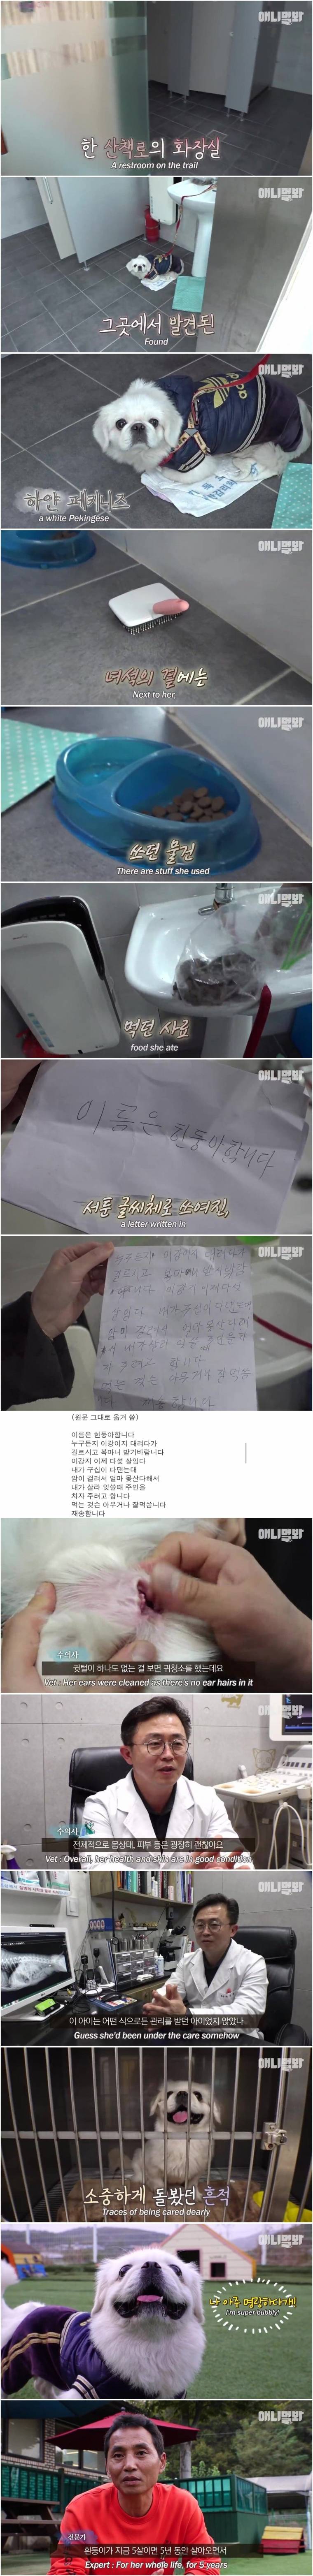 애니멀봐
한 산책로의 화장실
A restroom on the trail
애니멀봐
그곳에서 발견된
Found
애니멀봐
하얀 페키니즈
a white Pekingese
애니멀봐
녀석의 곁에는
Next to her,
애니멀봐
쓰던 물건
There are stuff she used
애니멀봐
먹던 사료
food she ate
애니멀봐
이름은 힌둥아합니다
서툰 글씨체로 쓰여진,
a letter written in
애니멀봐
(원문 그대로 옮겨 씀)
이름은 힌둥아합니다
누구든지 이강이지 대려다가
길르시고 복마니 받기바람니다
이강지 이제 다섯 살임다
내가 구십이 다댄는대
암이 걸려서 얼마 못산다해서
내가 살라 잊쓸때 주인을
차자 주려고 합니다
먹는 것슨 아무거나 잘먹씀니다
재송합니다
수의사
귓털이 하나도 없는 걸 보면 귀청소를 했는데요
Vet : Her ears were cleaned as there's no ear hairs in it
수의사
전체적으로 몸상태, 피부 등은 굉장히 괜찮아요
Vet : Overall, her health and skin are in good condition
애니멀봐
이 아이는 어떤 식으로든 관리를 받던 아이었지 않았나
Guess she'd been under the care somehow
애니멀봐
소중하게 돌봤던 흔적
Traces of being cared dearly
애니멀봐
나 아주 명랑하다개!
I'm super bubbly!
애니멀봐
전문가
흰둥이가 지금 5살이면 5년 동안 살아오면서
Expert : For her whole life, for 5 years